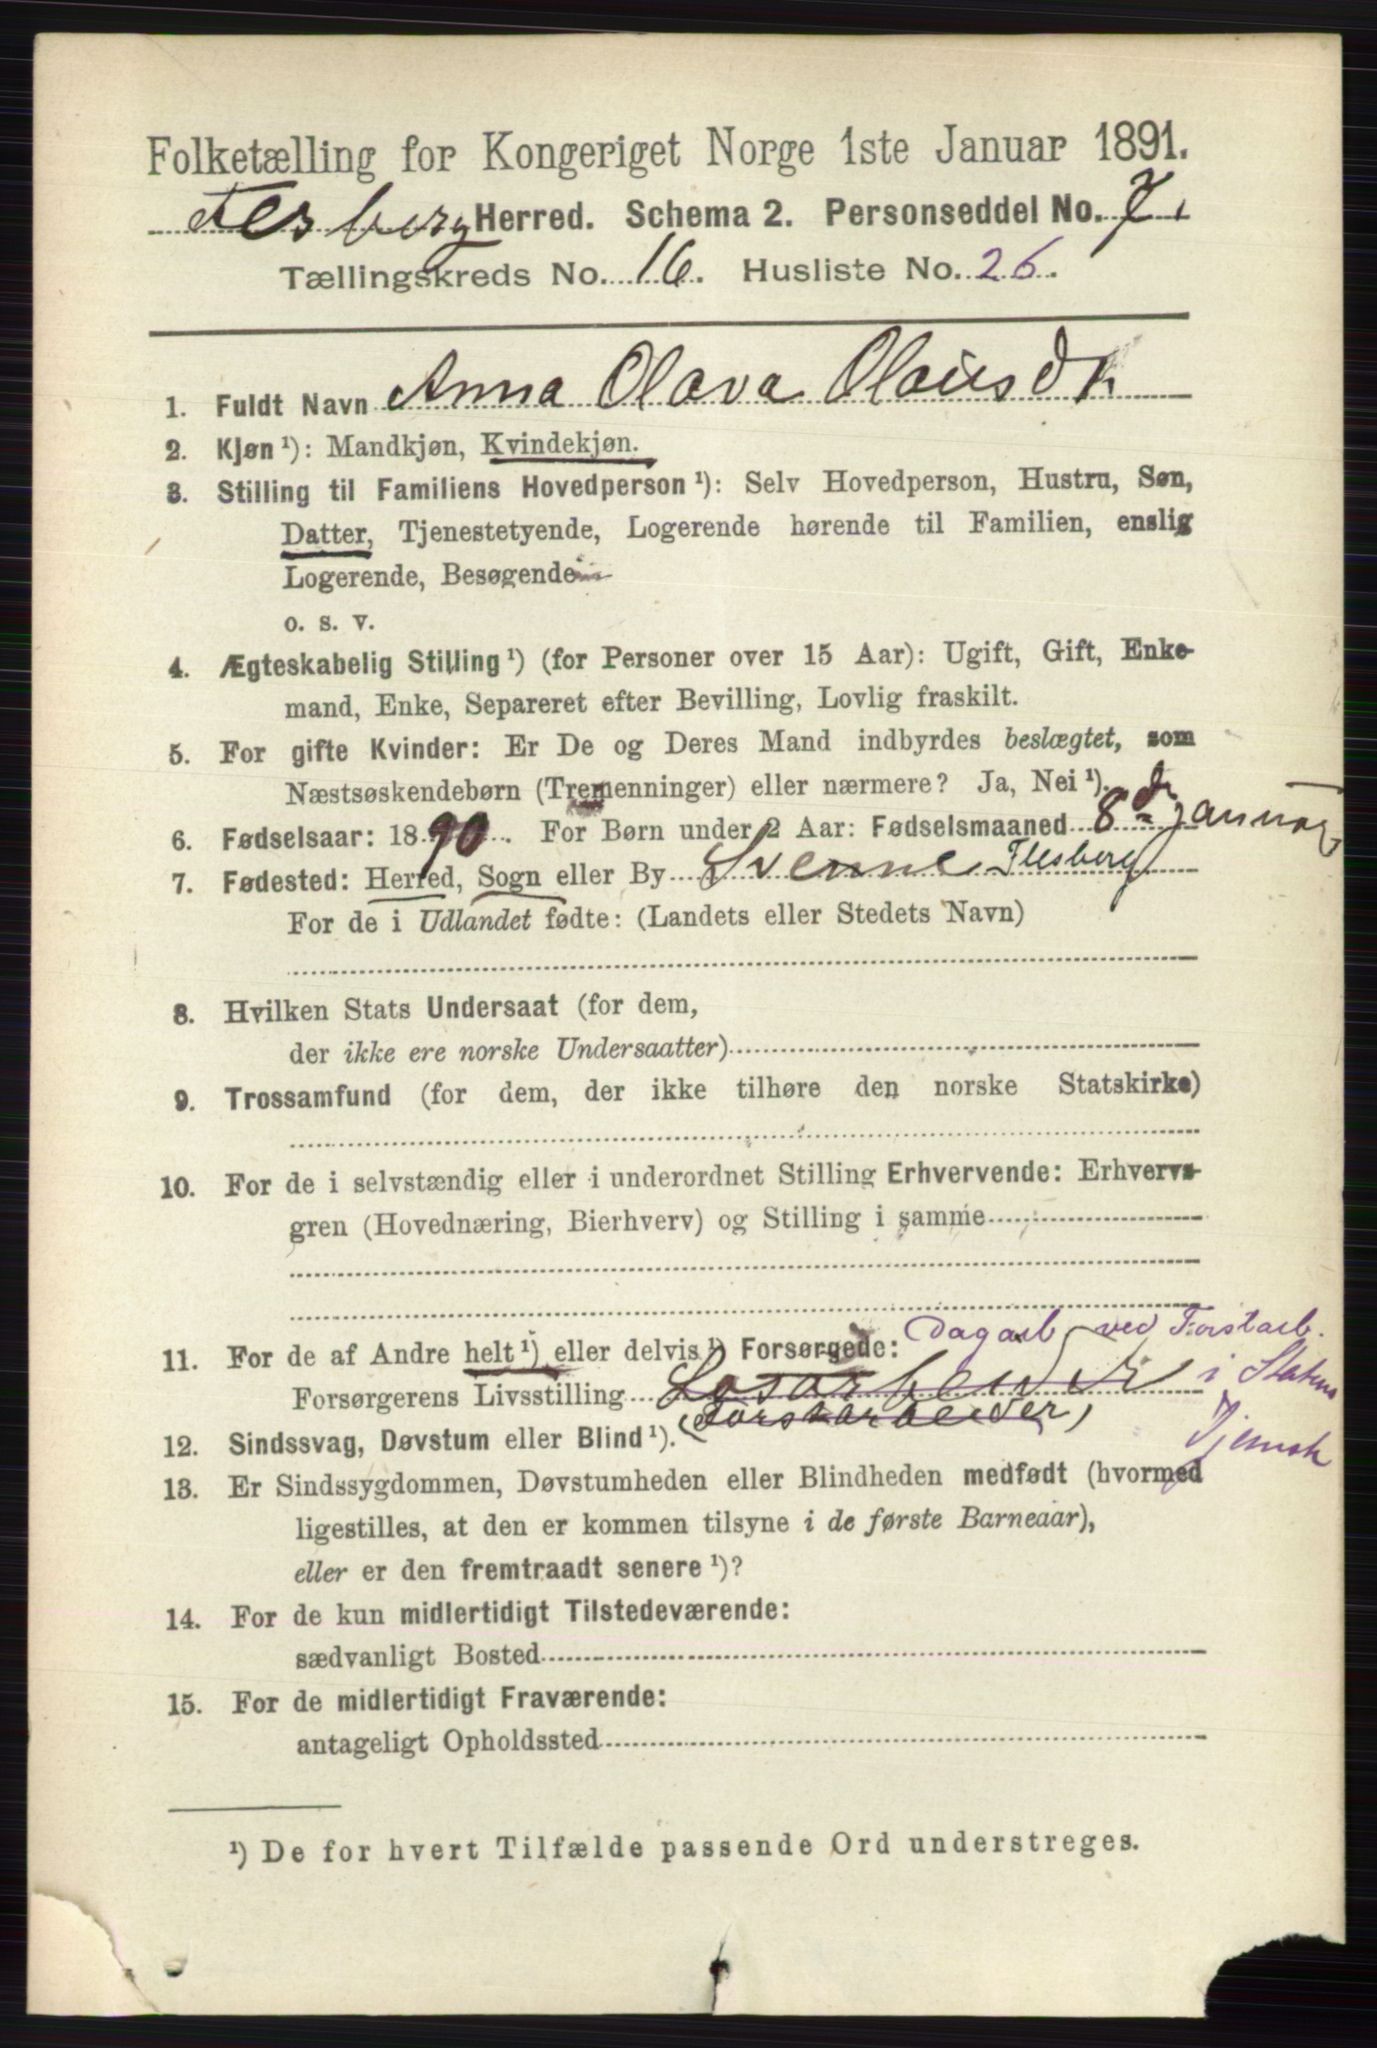 Folketælling for Kongeriget Norge 1ste Januar 1891.
Flesberg Herred. Schema 2. Personseddel No. 7.
Tællingskreds No. 16. Husliste No. 26.
1. Fuldt Navn Anna Olava Olausdtr
2. Kjøn ¹): Mandkjøn, Kvindekjøn.
3. Stilling til Familiens Hovedperson ¹): Selv Hovedperson, Hustru, Søn,
Datter, Tjenestetyende, Logerende hørende til Familien, enslig
Logerende, Besøgende
o. s. v.
4. Ægteskabelig Stilling ¹) (for Personer over 15 Aar): Ugift, Gift, Enke-
mand, Enke, Separeret efter Bevilling, Lovlig fraskilt.
5. For gifte Kvinder: Er De og Deres Mand indbyrdes beslægtet, som
Næstsøskendebørn (Tremenninger) eller nærmere? Ja, Nei ¹).
6. Fødselsaar: 1890. For Børn under 2 Aar: Fødselsmaaned 8de Januar
7. Fødested: Herred, Sogn eller By Svenne Flesberg
For de i Udlandet fødte: (Landets eller Stedets Navn)
8. Hvilken Stats Undersaat (for dem,
der ikke ere norske Undersaatter)
9. Trossamfund (for dem, der ikke tilhøre den norske Statskirke)
10. For de i selvstændig eller i underordnet Stilling Erhvervende: Erhvervs-
gren (Hovednæring, Bierhverv) og Stilling i samme
11. For de af Andre helt ¹) eller delvis ¹) Forsørgede: Dagarb ved Forstarb.
Forsørgerens Livsstilling Løsarbeider i Statens
(Forstarbeider) Tjeneste
12. Sindssvag, Døvstum eller Blind ¹).
13. Er Sindssygdommen, Døvstumheden eller Blindheden medfødt (hvormed
ligestilles, at den er kommen tilsyne i de første Barneaar),
eller er den fremtraadt senere ¹)?
14. For de kun midlertidigt Tilstedeværende:
sædvanligt Bosted
15. For de midlertidigt Fraværende:
antageligt Opholdssted
¹) De for hvert Tilfælde passende Ord understreges.